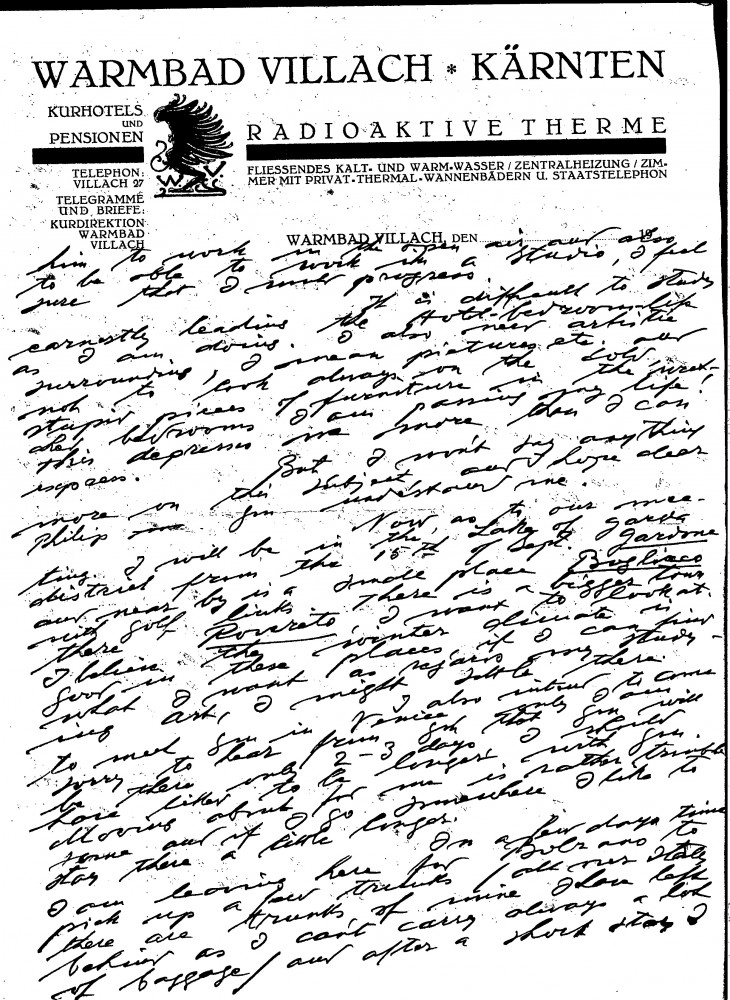 WARMBAD VILLACH * KÄRNTEN
KURHOTELS
UND
PENSIONEN
RADIOAKTIVE THERME
TELEPHON:
VILLACH 27
TELEGRAMME
UND BRIEFE:
KURDIREKTION
WARMBAD
VILLACH
W. V.
FLIESSENDES KALT- UND WARM-WASSER / ZENTRALHEIZUNG / ZIM-
MER MIT PRIVAT-THERMAL-WANNENBÄDERN U. STAATSTELEPHON
WARMBAD VILLACH, DEN 19
him to work in the open air and also
to be able to work in a studio, I feel
sure that I progress.
It is difficult to study
earnestly leading the Hotel-bedroom-life
as I am doing. I also need artistic
surrounding, I mean pictures etc. and
not to look always on the cold
stupid pieces of furniture in the
bedrooms I am passing my life!
this depresses me more than I can
express.
But I won't say anything
more on this subject and I hope dear
Philip you understand me.
Now, as to our mee-
ting I will be in the Lake of Garda
district from the 15th of Sept. Gardone
and near by is a small place Bogliaco
with golf links. There is a bigger town
there Rovereto, I want to look at.
I believe the winter climate is
good in these places if I can find
what I want as regards my study-
ing art, I might settle there.
I also intend to come
to meet you in Venice only I am
sorry to hear from you that you will
be there only 2-3 days I should
have liked to be longer with you.
Moving about for me is rather trouble
some and if I go somewhere I like to
stay there a little longer.
In a few days time
I am leaving here for Bolzano to
pick up a few trunks (all over Italy
there are trunks of mine I have left
behind as I can't carry always a lot
of baggage) and after a short stay I